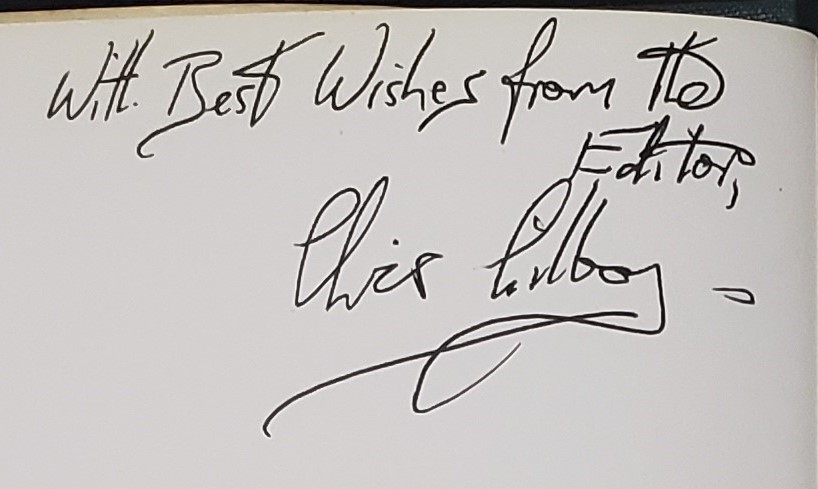 With Best Wishes from the
Editor,
Chris